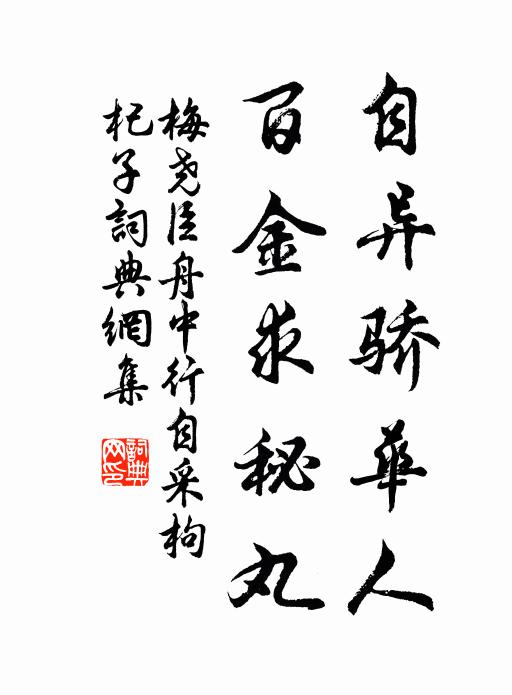 自异骄华人
百金求秘丸
梅尧臣舟中行自采枸
杞子詞典網集
詞典
网印